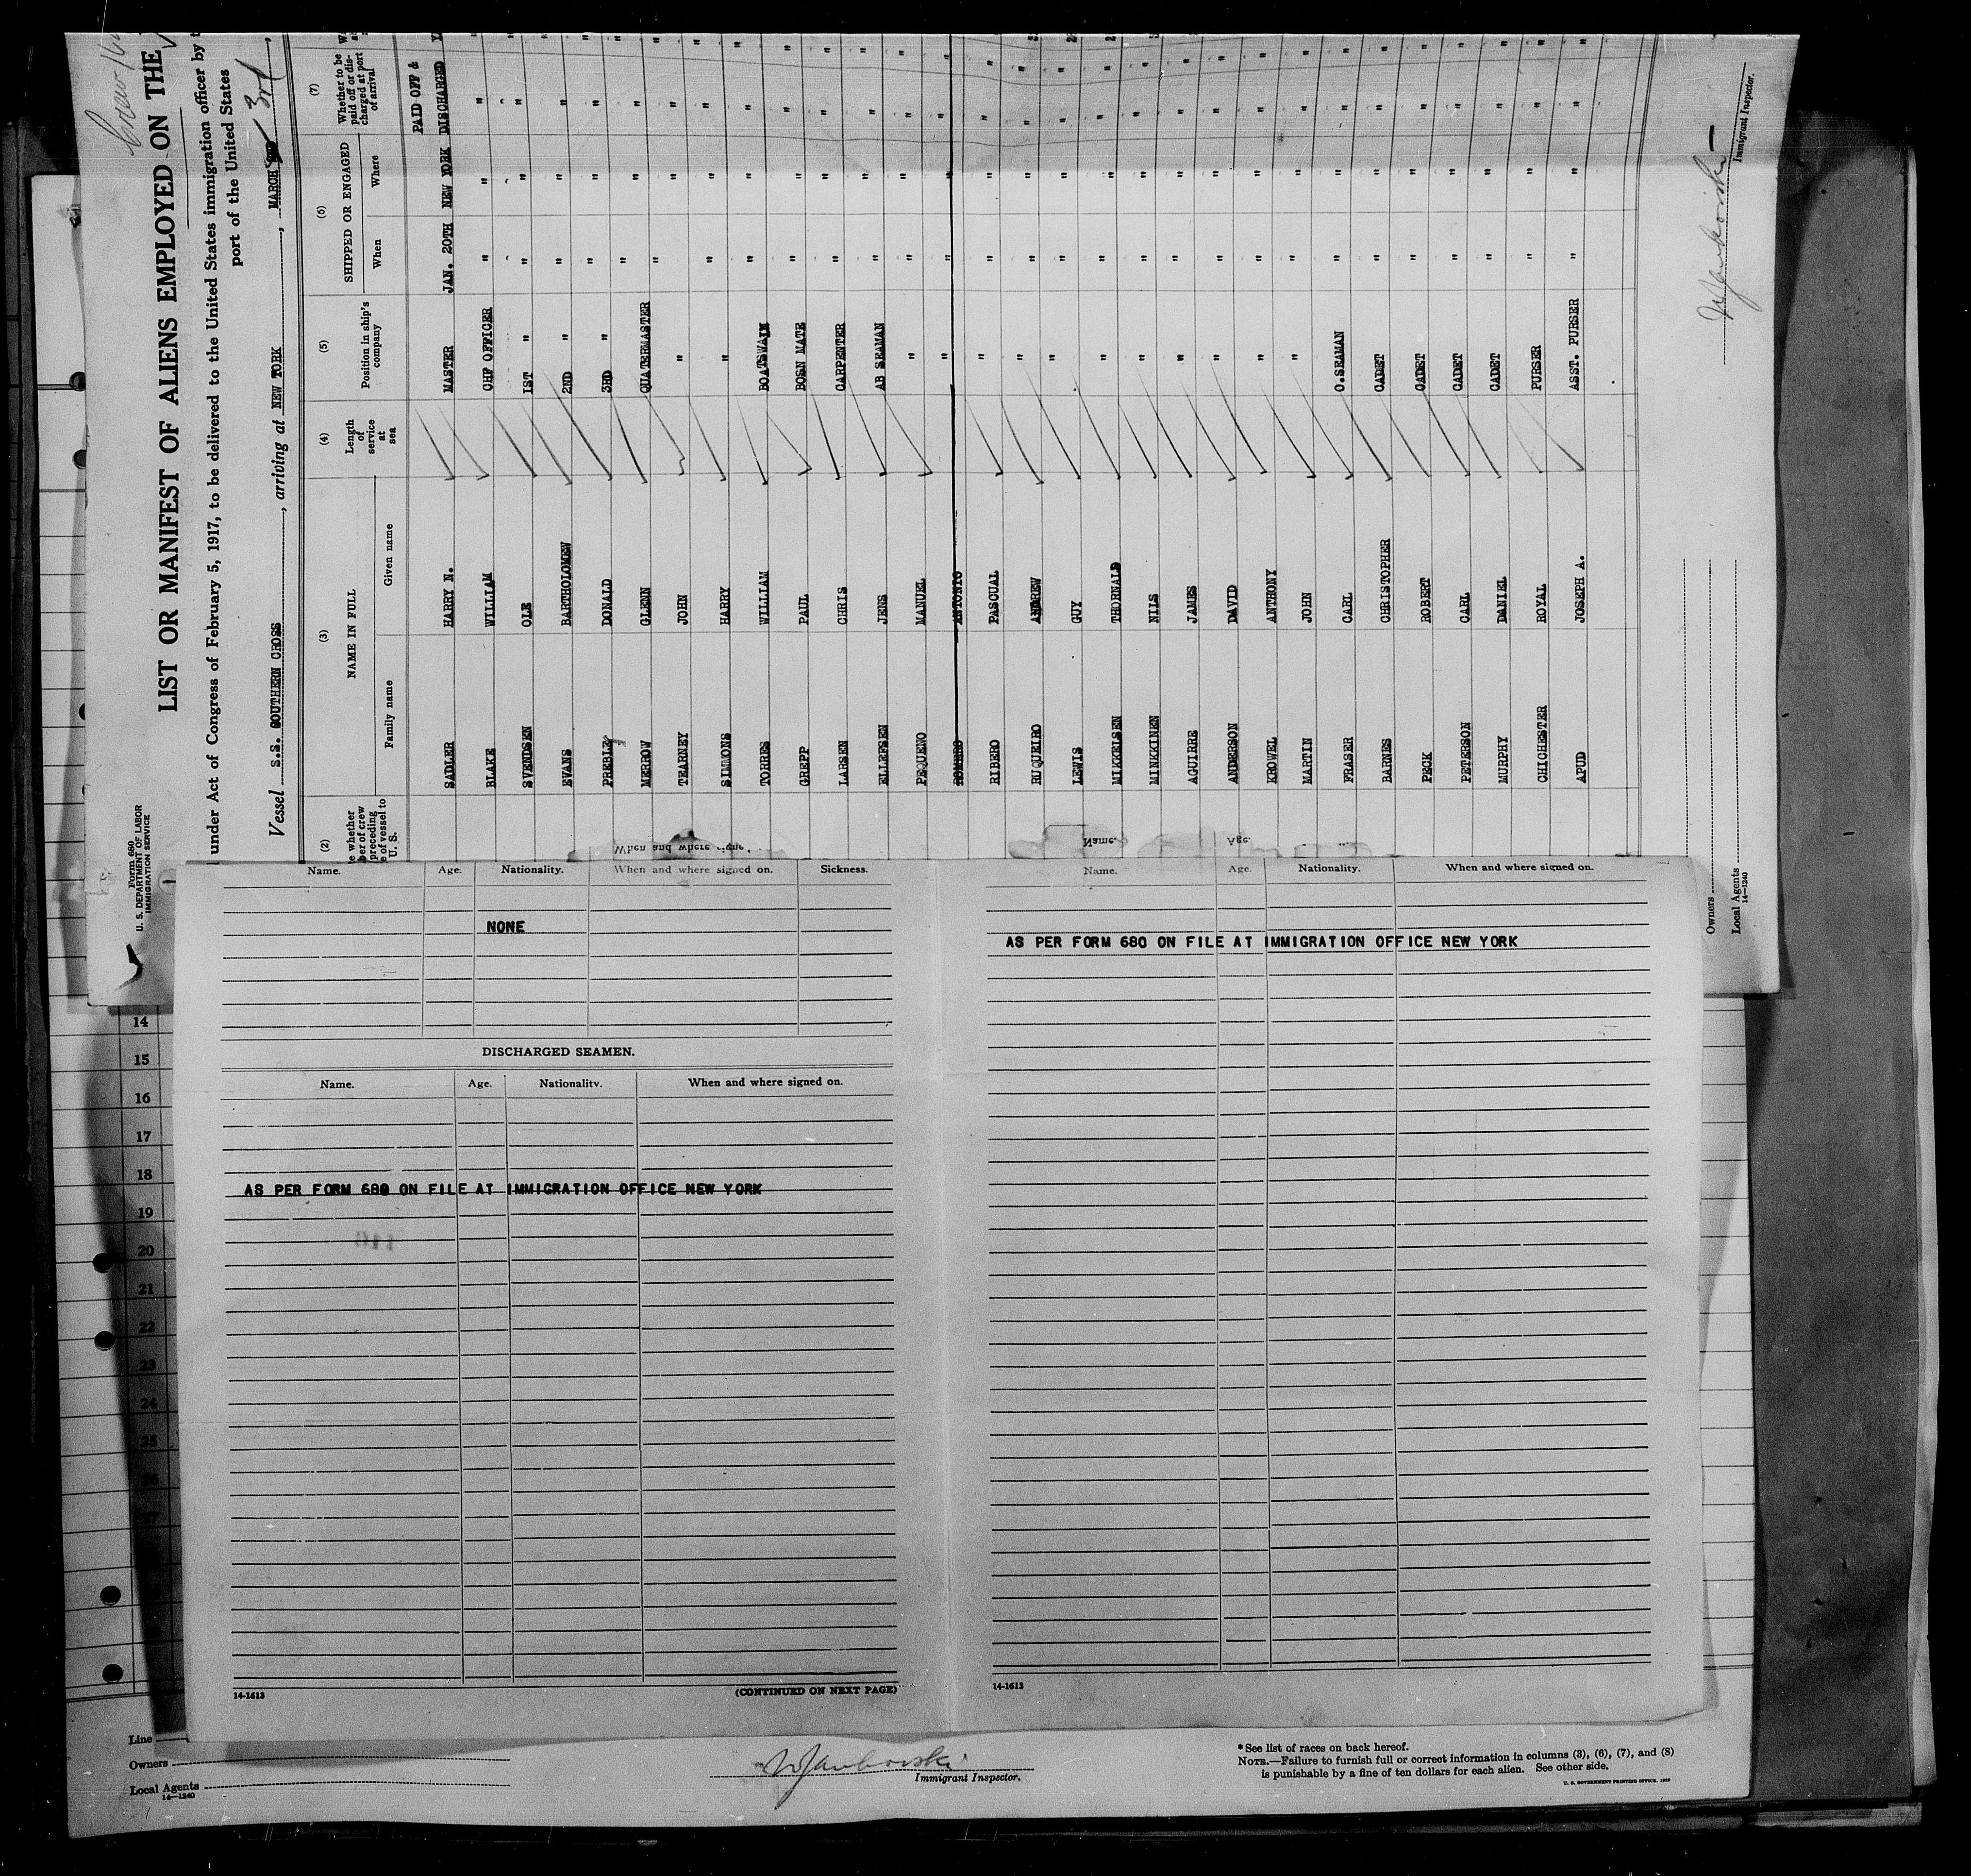 LIST OR MANIFEST OF ALIENS EMPLOYED ON THE
under Act of Congress of February 5, 1917, to be delivered to the United States immigration officer by
port of the United States
Form 680
U. S. DEPARTMENT OF LABOR
IMMIGRATION SERVICE
Vessel S.S. SOUTHERN CROSS, arriving at NEW YORK, MARCH 3rd,
(2) (3) (4) (5) (6) (7)
NAME IN FULL Length of service at sea Position in ship's company SHIPPED OR ENGAGED Whether to be paid off or discharged at port of arrival
Family name Given name When Where
PAID OFF &
SADLER HARRY N. MASTER JAN. 20TH NEW YORK DISCHARGED
BLAKE WILLIAM CHF OFFICER " " "
SVENDSEN OLE 1ST " " " "
EVANS BARTHOLOMEW 2ND " " " "
PREBLE DONALD 3RD " " " "
MERROW GLENN QUATERMASTER " " "
TEARNEY JOHN " " " "
SIMMONS HARRY " " " "
TORRES WILLIAM BOATSWAIN " " "
GREPP PAUL BOSN MATE " " "
LARSEN CHRIS CARPENTER " " "
ELLEFSEN JENS AB SEAMAN " " "
PEQUENO MANUEL " " " "
ROMERO ANTONIO " " " "
RIBERO PASCUAL " " " "
RUQUEIRO ANDREW " " " "
LEWIS GUY " " " "
MIKKELSEN THORNALD " " " "
MINKKINEN NILS " " " "
AGUIRRE JAMES " " " "
ANDERSON DAVID " " " "
KROWEL ANTHONY " " " "
MARTIN JOHN " " " "
FRASER CARL O.SEAMAN " " "
BARNES CHRISTOPHER CADET " " "
PECK ROBERT CADET " " "
PETERSON CARL CADET " " "
MURPHY DANIEL CADET " " "
CHICHESTER ROYAL PURSER " " "
APUD JOSEPH A. ASST. PURSER " " "
Immigrant Inspector.
Owners
Local Agents
14—1240
Name. Age. Nationality. When and where signed on. Sickness.
NONE
DISCHARGED SEAMEN.
Name. Age. Nationality. When and where signed on.
AS PER FORM 680 ON FILE AT IMMIGRATION OFFICE NEW YORK
14-1613
(CONTINUED ON NEXT PAGE)
Name. Age. Nationality. When and where signed on.
AS PER FORM 680 ON FILE AT IMMIGRATION OFFICE NEW YORK
14-1613
14
15
16
17
18
19
20
21
22
23
24
25
26
27
Line
Owners
Local Agents
14—1240
Immigrant Inspector.
*See list of races on back hereof.
NOTE.—Failure to furnish full or correct information in columns (3), (6), (7), and (8)
is punishable by a fine of ten dollars for each alien. See other side.